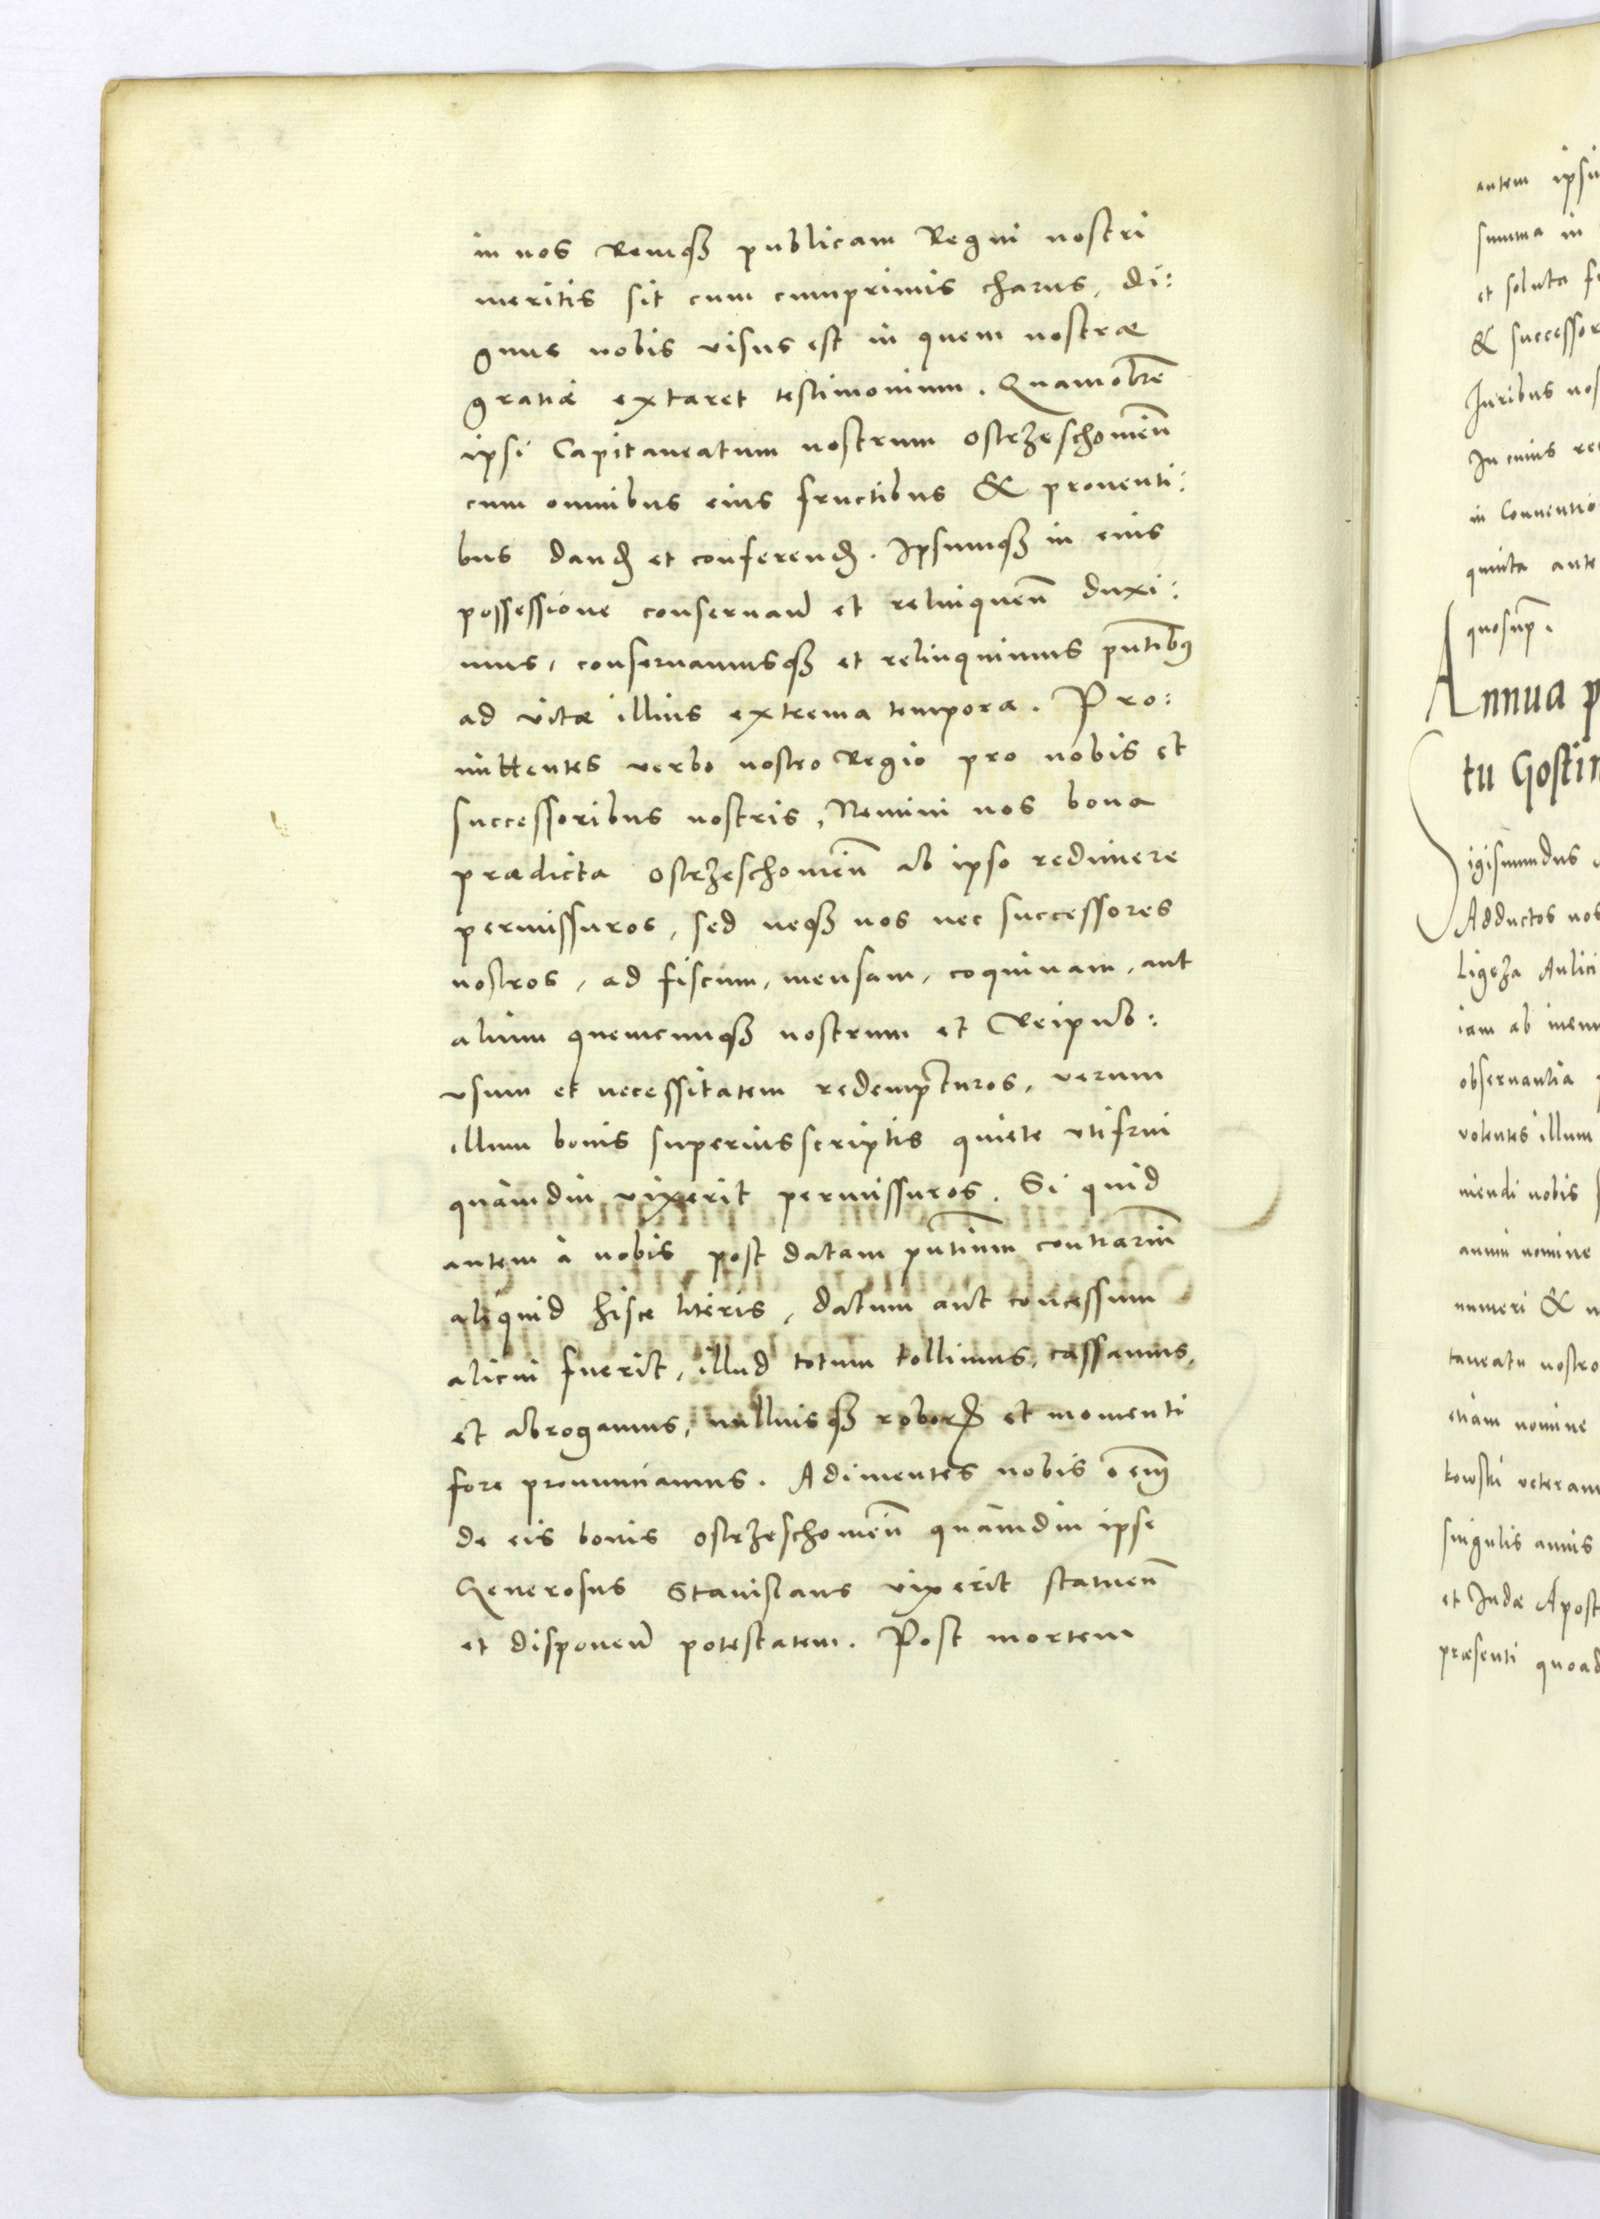 in nos Remq₃ publicam Regni nostri
meritis sit cum cumprimis charus, di:
gnus nobis visus est in quem nostræ
gratiæ extaret testimonium. Quamobrē
ipsi Capitaneatum nostrum ostrzeschowieñ
cum omnibus eius fructibus & prouenti:
bus dand et conferend. Ipsumq₃ in eius
possessione conseruand et relinqueñ duxi:
mus, conseruamusq₃ et relinquimus pñtibus
ad vitæ illius extrema tempora. Pro:
mittentes verbo nostro Regio pro nobis et
successoribus nostris, Nemini nos bona
prædicta ostrzeschowieñ ab ipso redimere
permissuros, sed neq₃ nos nec successores
nostros, ad fiscum, mensam, coquinam, aut
alium quemcumq₃ nostrum et Reipub:
vsum et necessitatem redempturos, verum
illum bonis superiusscriptis quiete vtifrui
quamdiu vixerit permissuros. Si quid
autem à nobis post datam pñtium contrarium
aliquid hisce literis, datum aut concessum
alicui fuerit, illud totum tollimus, cassamus,
et abrogamus, nulliusq₃ robor et momenti
fore pronunciamus. Adimentes nobis oēm
de eis bonis ostrzeschowieñ quamdiu ipse
Generosus Stanislaus vixerit statueñ
et disponend potestatem. Post mortem
autem
summa in
et soluta
& successor
Juribus nos
In cuius
in Conuentio
quinta ante
quosup.
Annua p
tu Gostin
Sigismundus
Adductos nos
Ligeza Aulici
iam ab
obseruantia
volentes illum
niendi nobis
anni nomine
numeri &
taneatu nostro
etiam nomine
kowski veteran
singulis annis
et Iudæ Apost
præsenti quoad